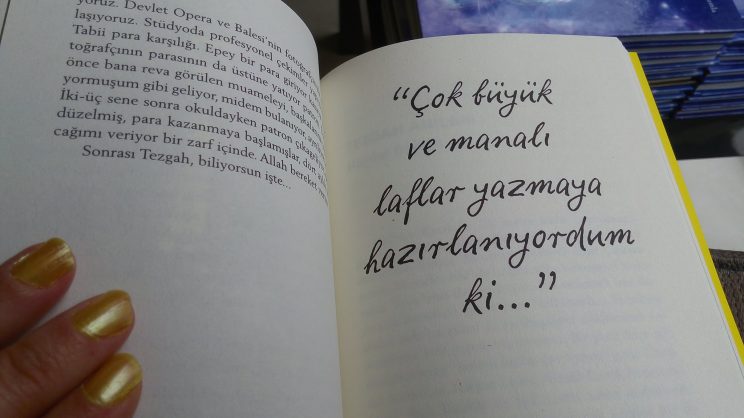 yoruz. Devlet Opera ve Balesi'nin fotoğraf
laşıyoruz. Stüdyoda profesyonel çekimler
Tabii para karşılığı. Epey bir para giriyor
toğrafçının parasının da üstüne yatıyor
önce bana reva görülen muameleyi, başkaları
yormuşum gibi geliyor, midem bulanıyor,
İki-üç sene sonra okuldayken patron çıkageliyor
düzelmiş, para kazanmaya başlamışlar, dört
cağımı veriyor bir zarf içinde. Allah bereket
Sonrası Tezgah, biliyorsun işte...
“Çok büyük
ve manalı
laflar yazmaya
hazırlanıyordum
ki...”